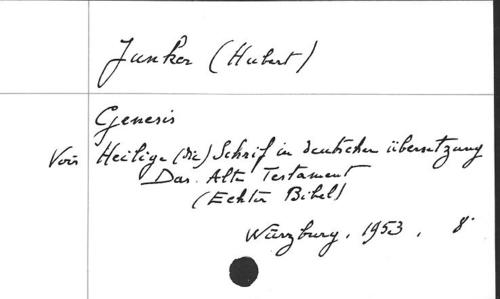 Junker (Hubert)
Genesis
Voir Heilige (die) Schrif in deutscher übersetzung
Das Alte Testament
(Echter Bibel)
Würzburg, 1953, 8°